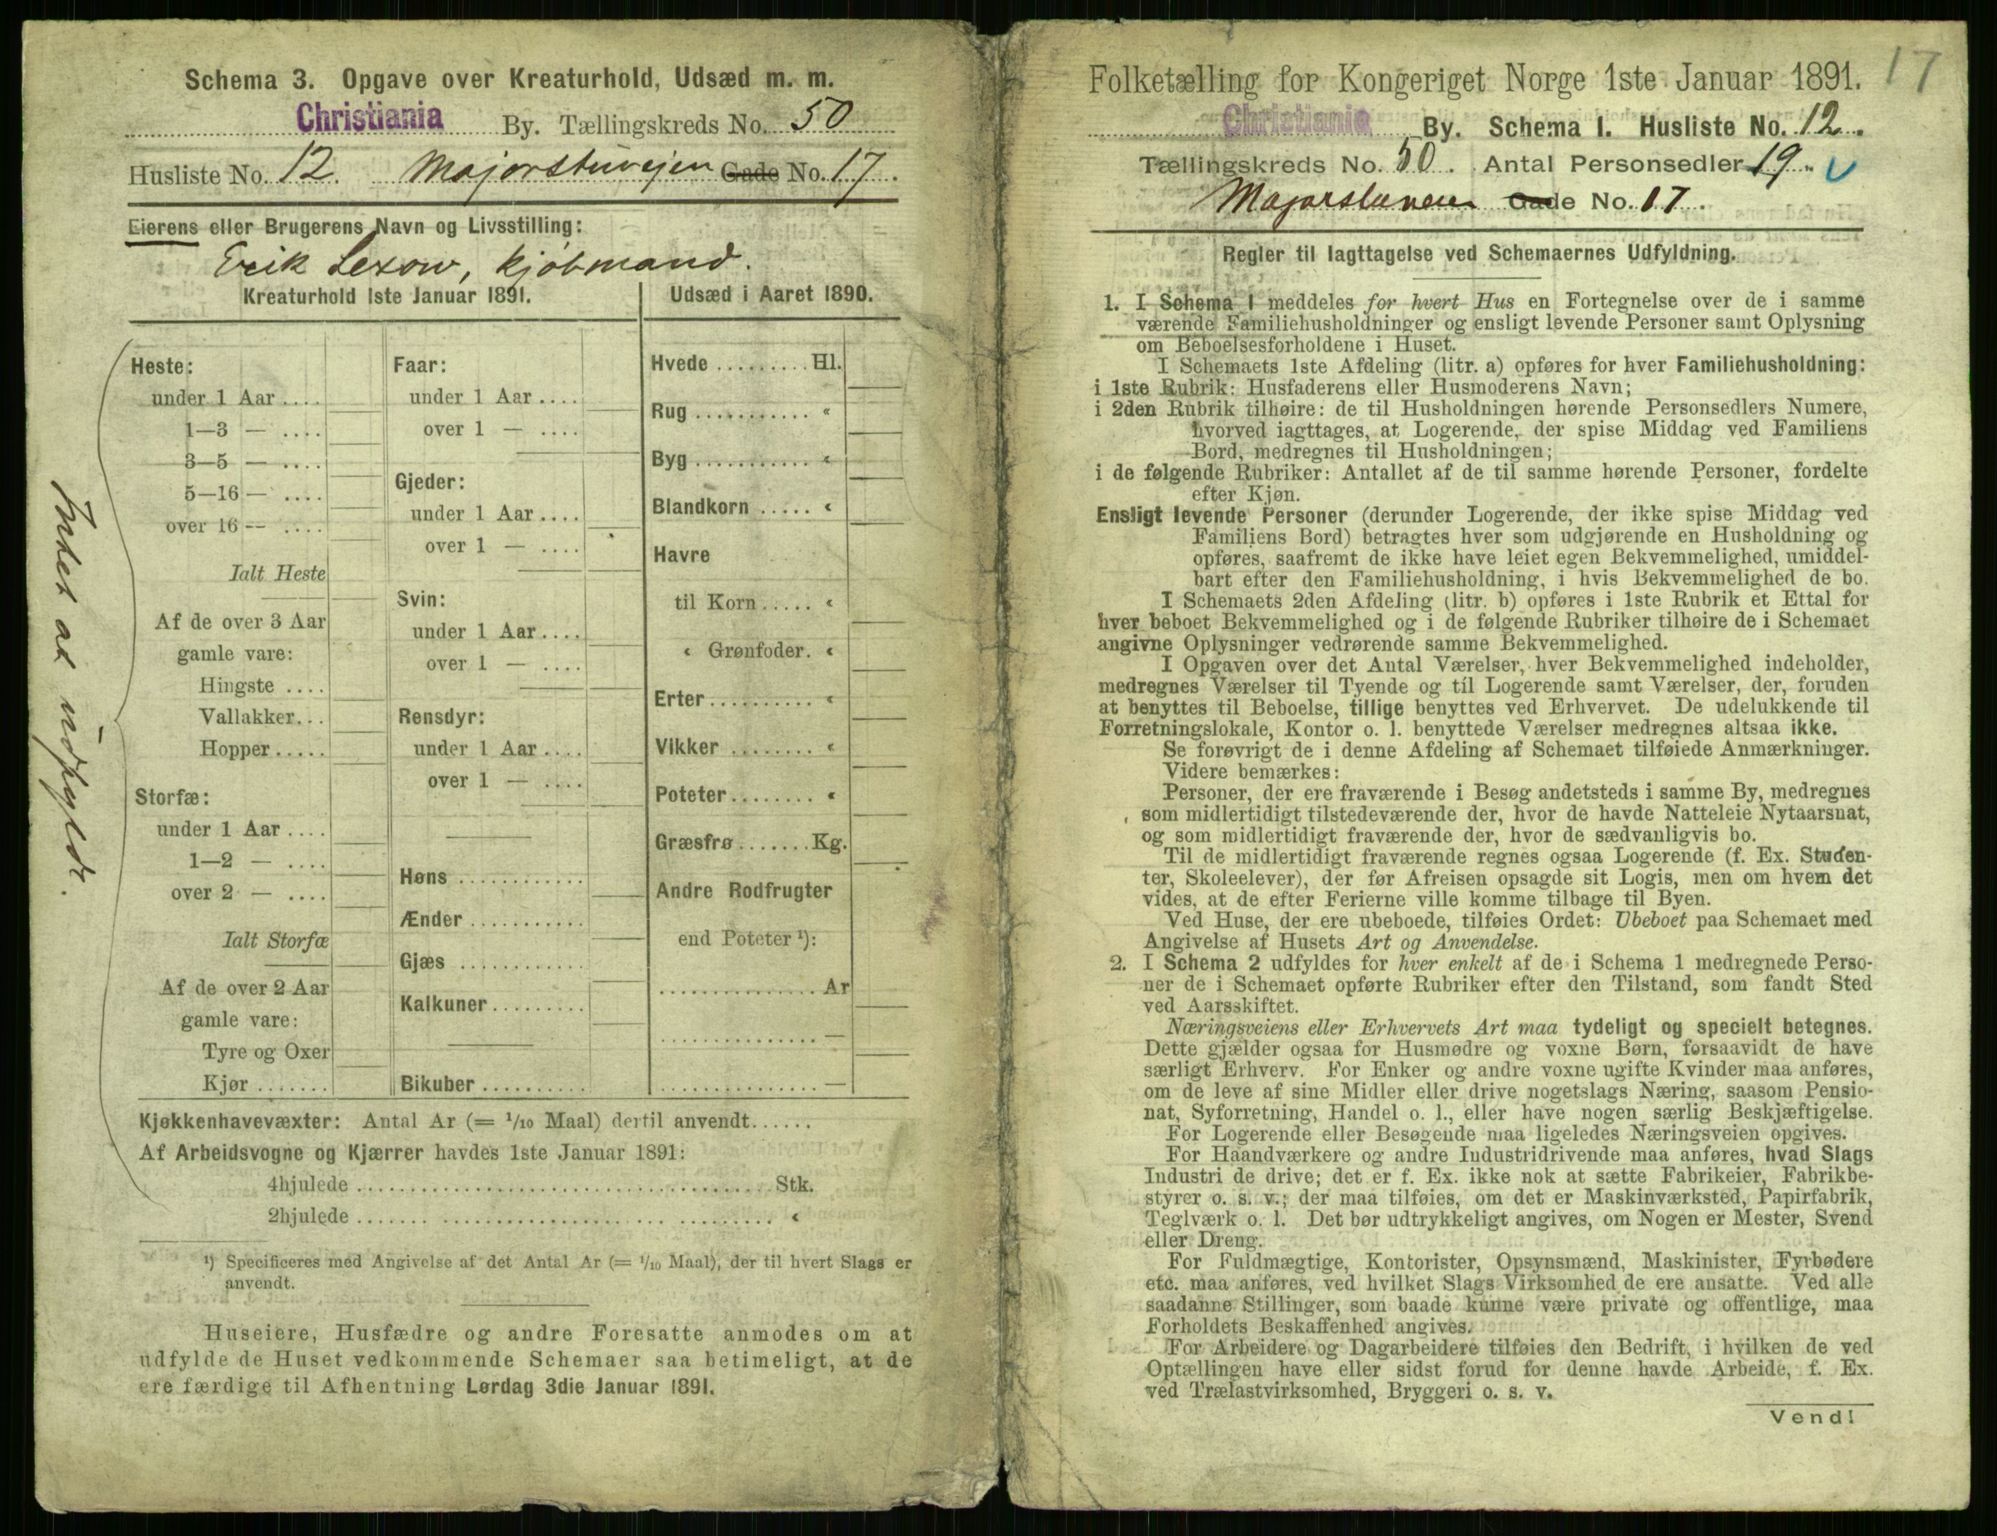 Schema 3. Opgave over Kreaturhold, Udsæd m. m.
Christiania By. Tællingskreds No. 50
Husliste No. 12. Majorstuvejen Gade No. 17.
Eierens eller Brugerens Navn og Livsstilling:
Erik Lexow, kjøbmand.
Kreaturhold 1ste Januar 1891.
Heste:
under 1 Aar ....
1—3 — ....
3—5 — ....
5—16 — ....
over 16 -- ....
Ialt Heste
Af de over 3 Aar
gamle vare:
Hingste ....
Vallakker...
Hopper.....
Storfæ:
under 1 Aar ....
1—2 — ....
over 2 — ....
Ialt Storfæ
Af de over 2 Aar
gamle vare:
Tyre og Oxer
Kjør .......
Faar:
under 1 Aar ....
over 1 — ....
Gjeder:
under 1 Aar ....
over 1 — ....
Svin:
under 1 Aar ....
over 1 — ....
Rensdyr:
under 1 Aar ....
over 1 — ....
Høns ............
Ænder ...........
Gjæs ............
Kalkuner.........
Bikuber..........
Udsæd i Aaret 1890.
Hvede ......... Hl.
Rug ........... «
Byg ........... «
Blandkorn ..... «
Havre
til Korn..... «
« Grønfoder. «
Erter ......... «
Vikker ........ «
Poteter........ «
Græsfrø....... Kg.
Andre Rodfrugter
end Poteter ¹):
............... Ar
............... —
............... —
Intet at udfylde.
Kjøkkenhavevæxter: Antal Ar (= 1/10 Maal) dertil anvendt......
Af Arbeidsvogne og Kjærrer havdes 1ste Januar 1891:
4hjulede ........................................ Stk.
2hjulede ........................................ «
¹) Specificeres med Angivelse af det Antal Ar (= 1/10 Maal), der til hvert Slags er
anvendt.
Huseiere, Husfædre og andre Foresatte anmodes om at
udfylde de Huset vedkommende Schemaer saa betimeligt, at de
ere færdige til Afhentning Lørdag 3die Januar 1891.
17
Folketælling for Kongeriget Norge 1ste Januar 1891.
Christiania By. Schema 1. Husliste No. 12.
Tællingskreds No. 50. Antal Personsedler 19.
Majorstuveien Gade No. 17.
Regler til Iagttagelse ved Schemaernes Udfyldning.
1. I Schema 1 meddeles for hvert Hus en Fortegnelse over de i samme
værende Familiehusholdninger og ensligt levende Personer samt Oplysning
om Beboelsesforholdene i Huset.
I Schemaets 1ste Afdeling (litr. a) opføres for hver Familiehusholdning:
i 1ste Rubrik: Husfaderens eller Husmoderens Navn;
i 2den Rubrik tilhøire: de til Husholdningen hørende Personsedlers Numere,
hvorved iagttages, at Logerende, der spise Middag ved Familiens
Bord, medregnes til Husholdningen;
i de følgende Rubriker: Antallet af de til samme hørende Personer, fordelte
efter Kjøn.
Ensligt levende Personer (derunder Logerende, der ikke spise Middag ved
Familiens Bord) betragtes hver som udgjørende en Husholdning og
opføres, saafremt de ikke have leiet egen Bekvemmelighed, umiddel-
bart efter den Familiehusholdning, i hvis Bekvemmelighed de bo.
I Schemaets 2den Afdeling (litr. b) opføres i 1ste Rubrik et Ettal for
hver beboet Bekvemmelighed og i de følgende Rubriker tilhøire de i Schemaet
angivne Oplysninger vedrørende samme Bekvemmelighed.
I Opgaven over det Antal Værelser, hver Bekvemmelighed indeholder,
medregnes Værelser til Tyende og til Logerende samt Værelser, der, foruden
at benyttes til Beboelse, tillige benyttes ved Erhvervet. De udelukkende til
Forretningslokale, Kontor o. l. benyttede Værelser medregnes altsaa ikke.
Se forøvrigt de i denne Afdeling af Schemaet tilføiede Anmærkninger.
Videre bemærkes:
Personer, der ere fraværende i Besøg andetsteds i samme By, medregnes
som midlertidigt tilstedeværende der, hvor de havde Natteleie Nytaarsnat,
og som midlertidigt fraværende der, hvor de sædvanligvis bo.
Til de midlertidigt fraværende regnes ogsaa Logerende (f. Ex. Studen-
ter, Skoleelever), der før Afreisen opsagde sit Logis, men om hvem det
vides, at de efter Ferierne ville komme tilbage til Byen.
Ved Huse, der ere ubeboede, tilføies Ordet: Ubeboet paa Schemaet med
Angivelse af Husets Art og Anvendelse.
2. I Schema 2 udfyldes for hver enkelt af de i Schema 1 medregnede Perso-
ner de i Schemaet opførte Rubriker efter den Tilstand, som fandt Sted
ved Aarsskiftet.
Næringsveiens eller Erhvervets Art maa tydeligt og specielt betegnes.
Dette gjælder ogsaa for Husmødre og voxne Børn, forsaavidt de have
særligt Erhverv. For Enker og andre voxne ugifte Kvinder maa anføres,
om de leve af sine Midler eller drive nogetslags Næring, saasom Pensio-
nat, Syforretning, Handel o. l., eller have nogen særlig Beskjæftigelse.
For Logerende eller Besøgende maa ligeledes Næringsveien opgives.
For Haandværkere og andre Industridrivende maa anføres, hvad Slags
Industri de drive; det er f. Ex. ikke nok at sætte Fabrikeier, Fabrikbe-
styrer o. s. v.; der maa tilføies, om det er Maskinværksted, Papirfabrik,
Teglværk o. l. Det bør udtrykkeligt angives, om Nogen er Mester, Svend
eller Dreng.
For Fuldmægtige, Kontorister, Opsynsmænd, Maskinister, Fyrbødere
etc. maa anføres, ved hvilket Slags Virksomhed de ere ansatte. Ved alle
saadanne Stillinger, som baade kunne være private og offentlige, maa
Forholdets Beskaffenhed angives.
For Arbeidere og Dagarbeidere tilføies den Bedrift, i hvilken de ved
Optællingen have eller sidst forud for denne havde Arbeide, f. Ex.
ved Trælastvirksomhed, Bryggeri o. s. v.
Vend!